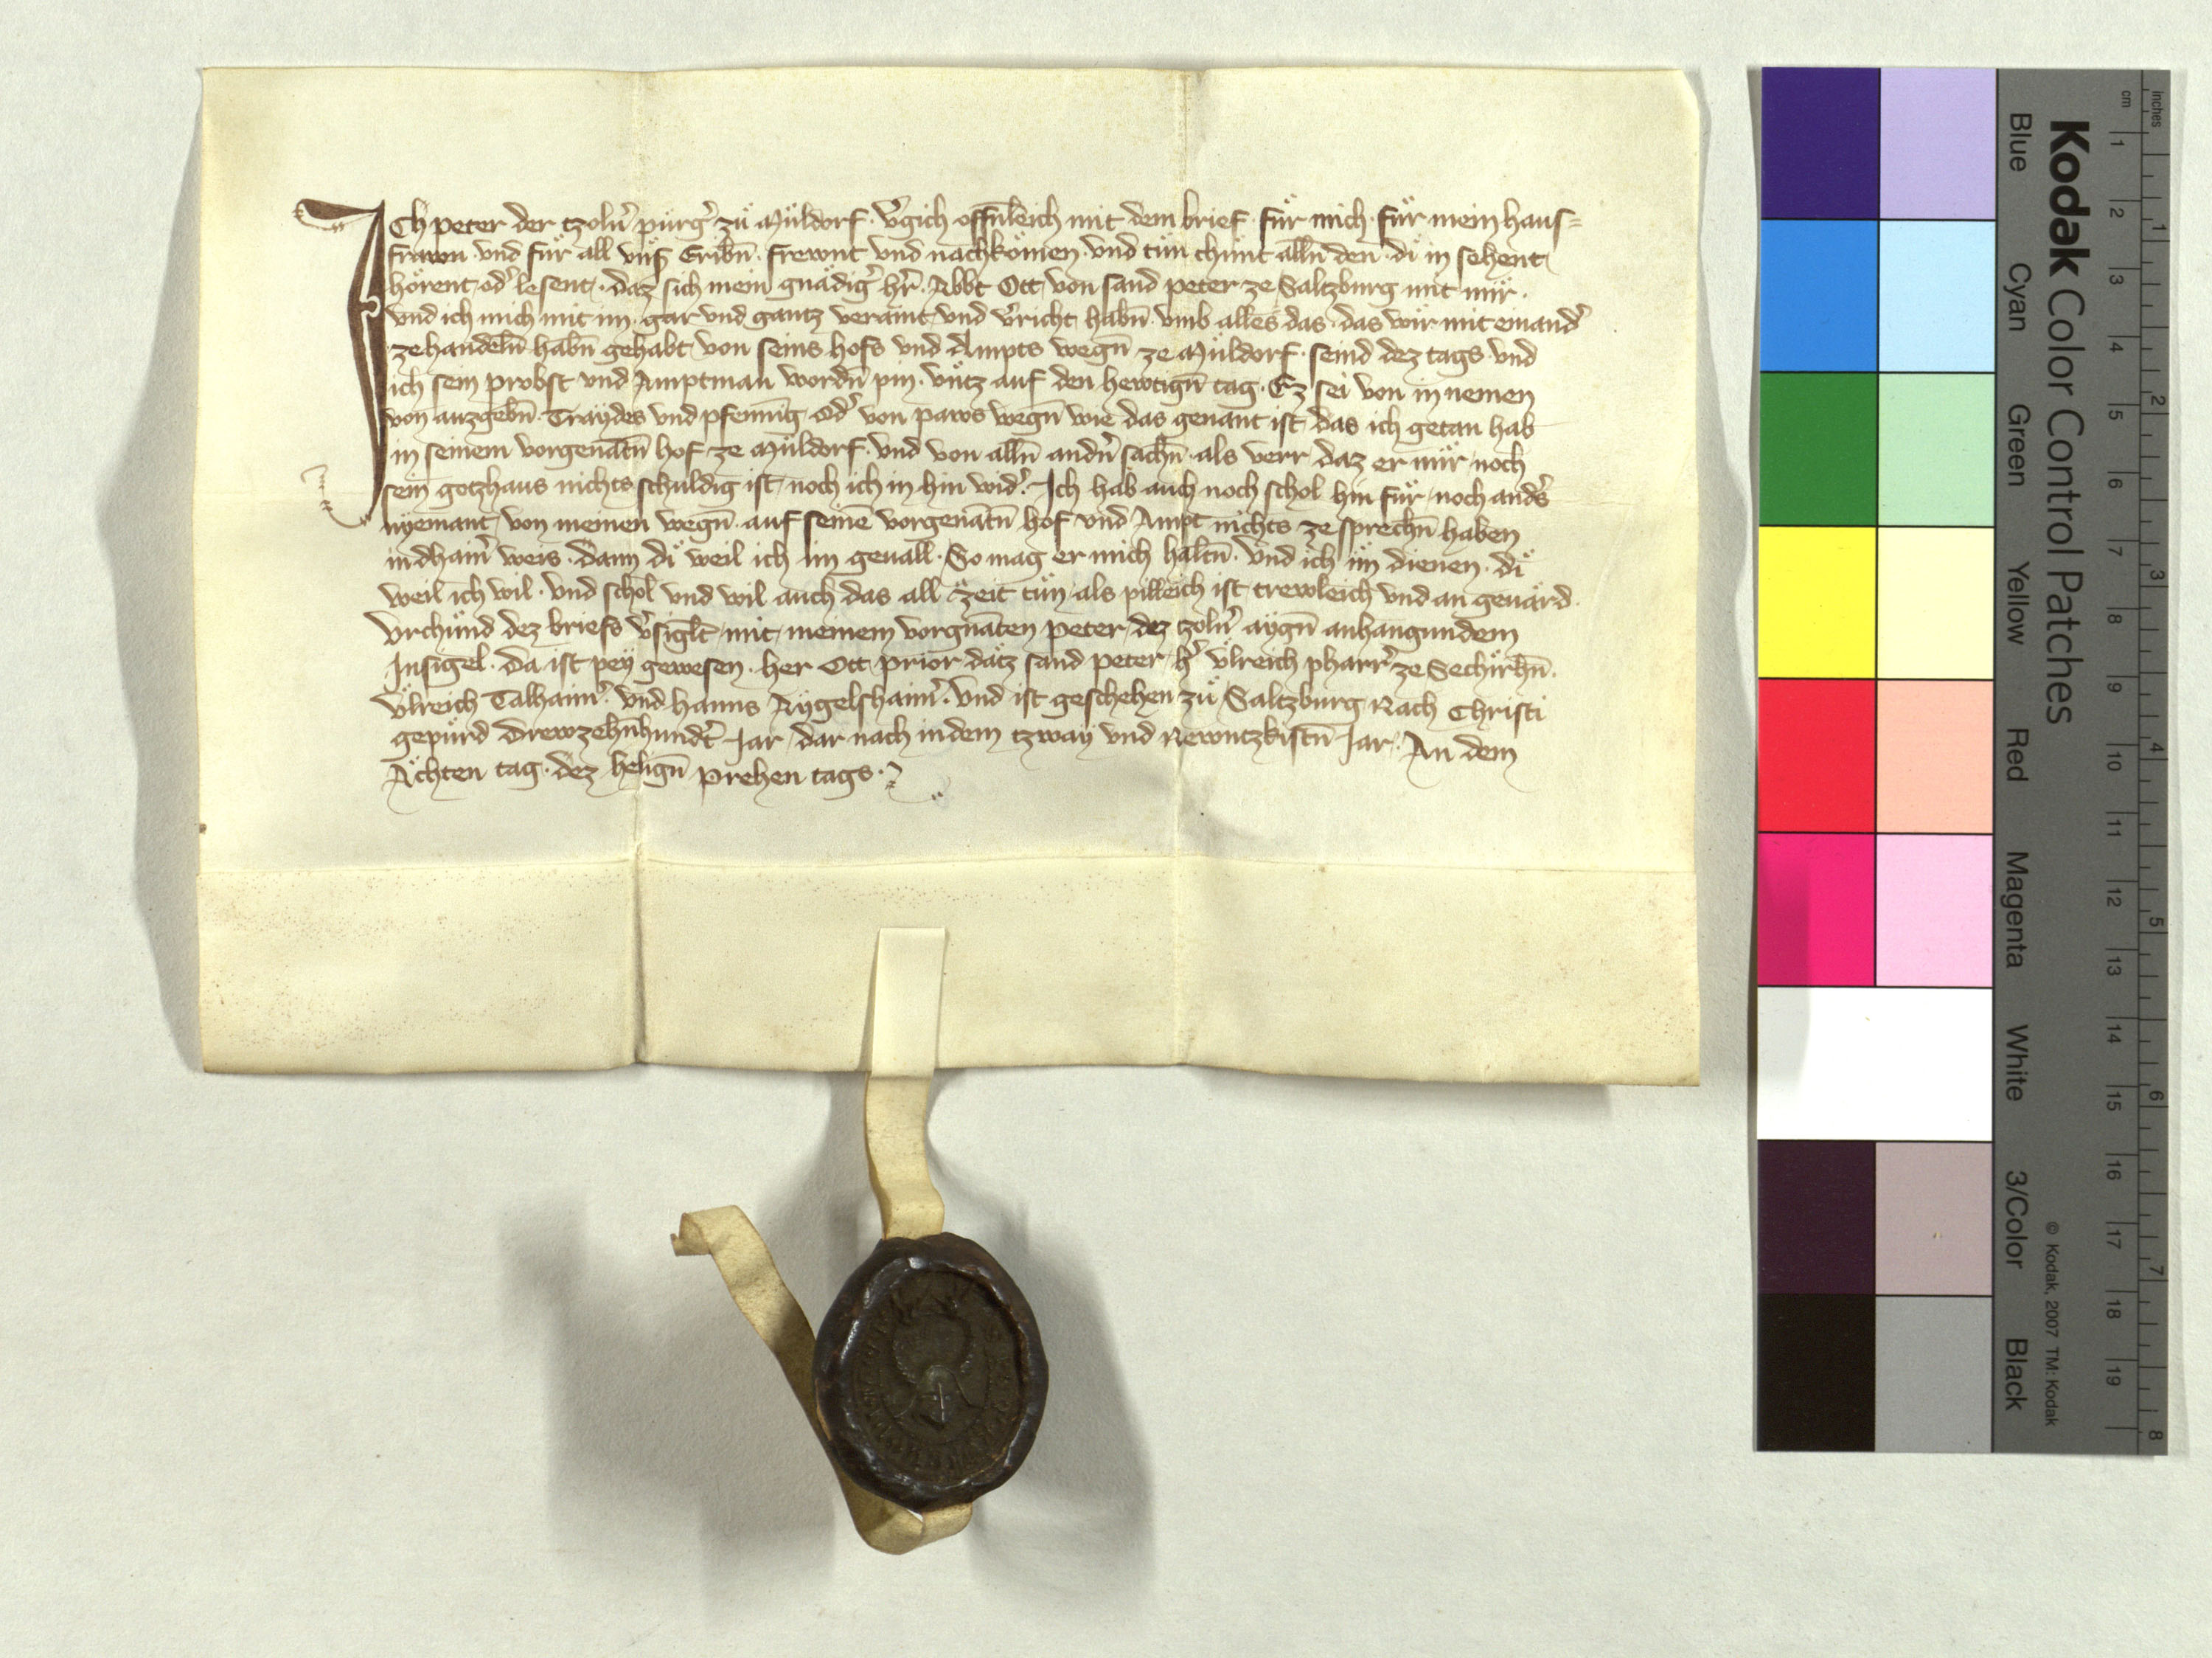 Ich peter der tzoln̄ pürg̉ zü Müldorf · v̉gich offn̄leich mit dem brief · für mich · für mein haus=
frawn · vnd für all vns̉ Eribn̄ · frewnt vnd nachkömen · vnd tün chünt alln̄ den · di in sehent ·
hörent · od̉ lesent · daz sich mein gnädig̉ h̉r · Abbt Ott von sand peter ze Saltzburg mit mir ·
vnd ich mich mit im · gar vnd gantz veraint vnd v̉richt habn̄ · vmb alles das · das wir mit einand̉
ze handeln̄ habn̄ gehabt von seins hofs vnd Ampts wegn̄ ze Müldorf · seind dez tags · vnd
ich sein probst vnd Amptman wordn̄ pin · vntz auf den hewtign̄ tag · Ez sei von in nemen
von auzgebn̄ · Traydes vnd pfennīg · od̉ von paws wegn̄ wie das genant ist das ich getan hab
in seinem vorgenātn̄ hof ze Müldorf · vnd von alln̄ andn̄ sachn̄ · als verr daz er mir noch
sein gotzhaus nichts schuldig ist noch ich in hin wid̉ · Ich hab auch noch schol hin für noch and̉s
nyemant von meinen wegn̄ · auf seinē vorgenātn̄ hof vnd Ampt nichts ze sprechn̄ haben
in dhain̉ weis · Dann di weil ich im geuall · So mag er mich haltn̄ · vnd ich im dienen · di
weil ich wil · vnd schol vnd wil auch das all zeit tün als pilleich ist trewleich vnd an geuärd ·
Vrchünd dez briefs v̉siglt mit meinem vorgnāten peter dez tzoln̉ aygn̄ anhangundem
Insigel · Da ist pey gewesen · her Ott prior datz sand peter h̉ Vlreich pharr̉ ze Sechirhn̄ ·
Vlreich Talhaim̉ · vnd Hanns Aygelshaim̉ · vnd ist geschehen zü Saltzburg Nach Christi
gepürd Drewzehn̄hundt̉ Jar dar nach in dem tzway vnd Newntzkistn̄ Jar · An dem
Achten tag · dez heilign̄ Prehen tags ·
Kodak Color Control Patches
Blue Cyan Green Yellow Red Magenta White 3/Color Black
© Kodak, 2007 TM: Kodak
cm 1 2 3 4 5 6 7 8 9 10 11 12 13 14 15 16 17 18 19
inches 1 2 3 4 5 6 7 8